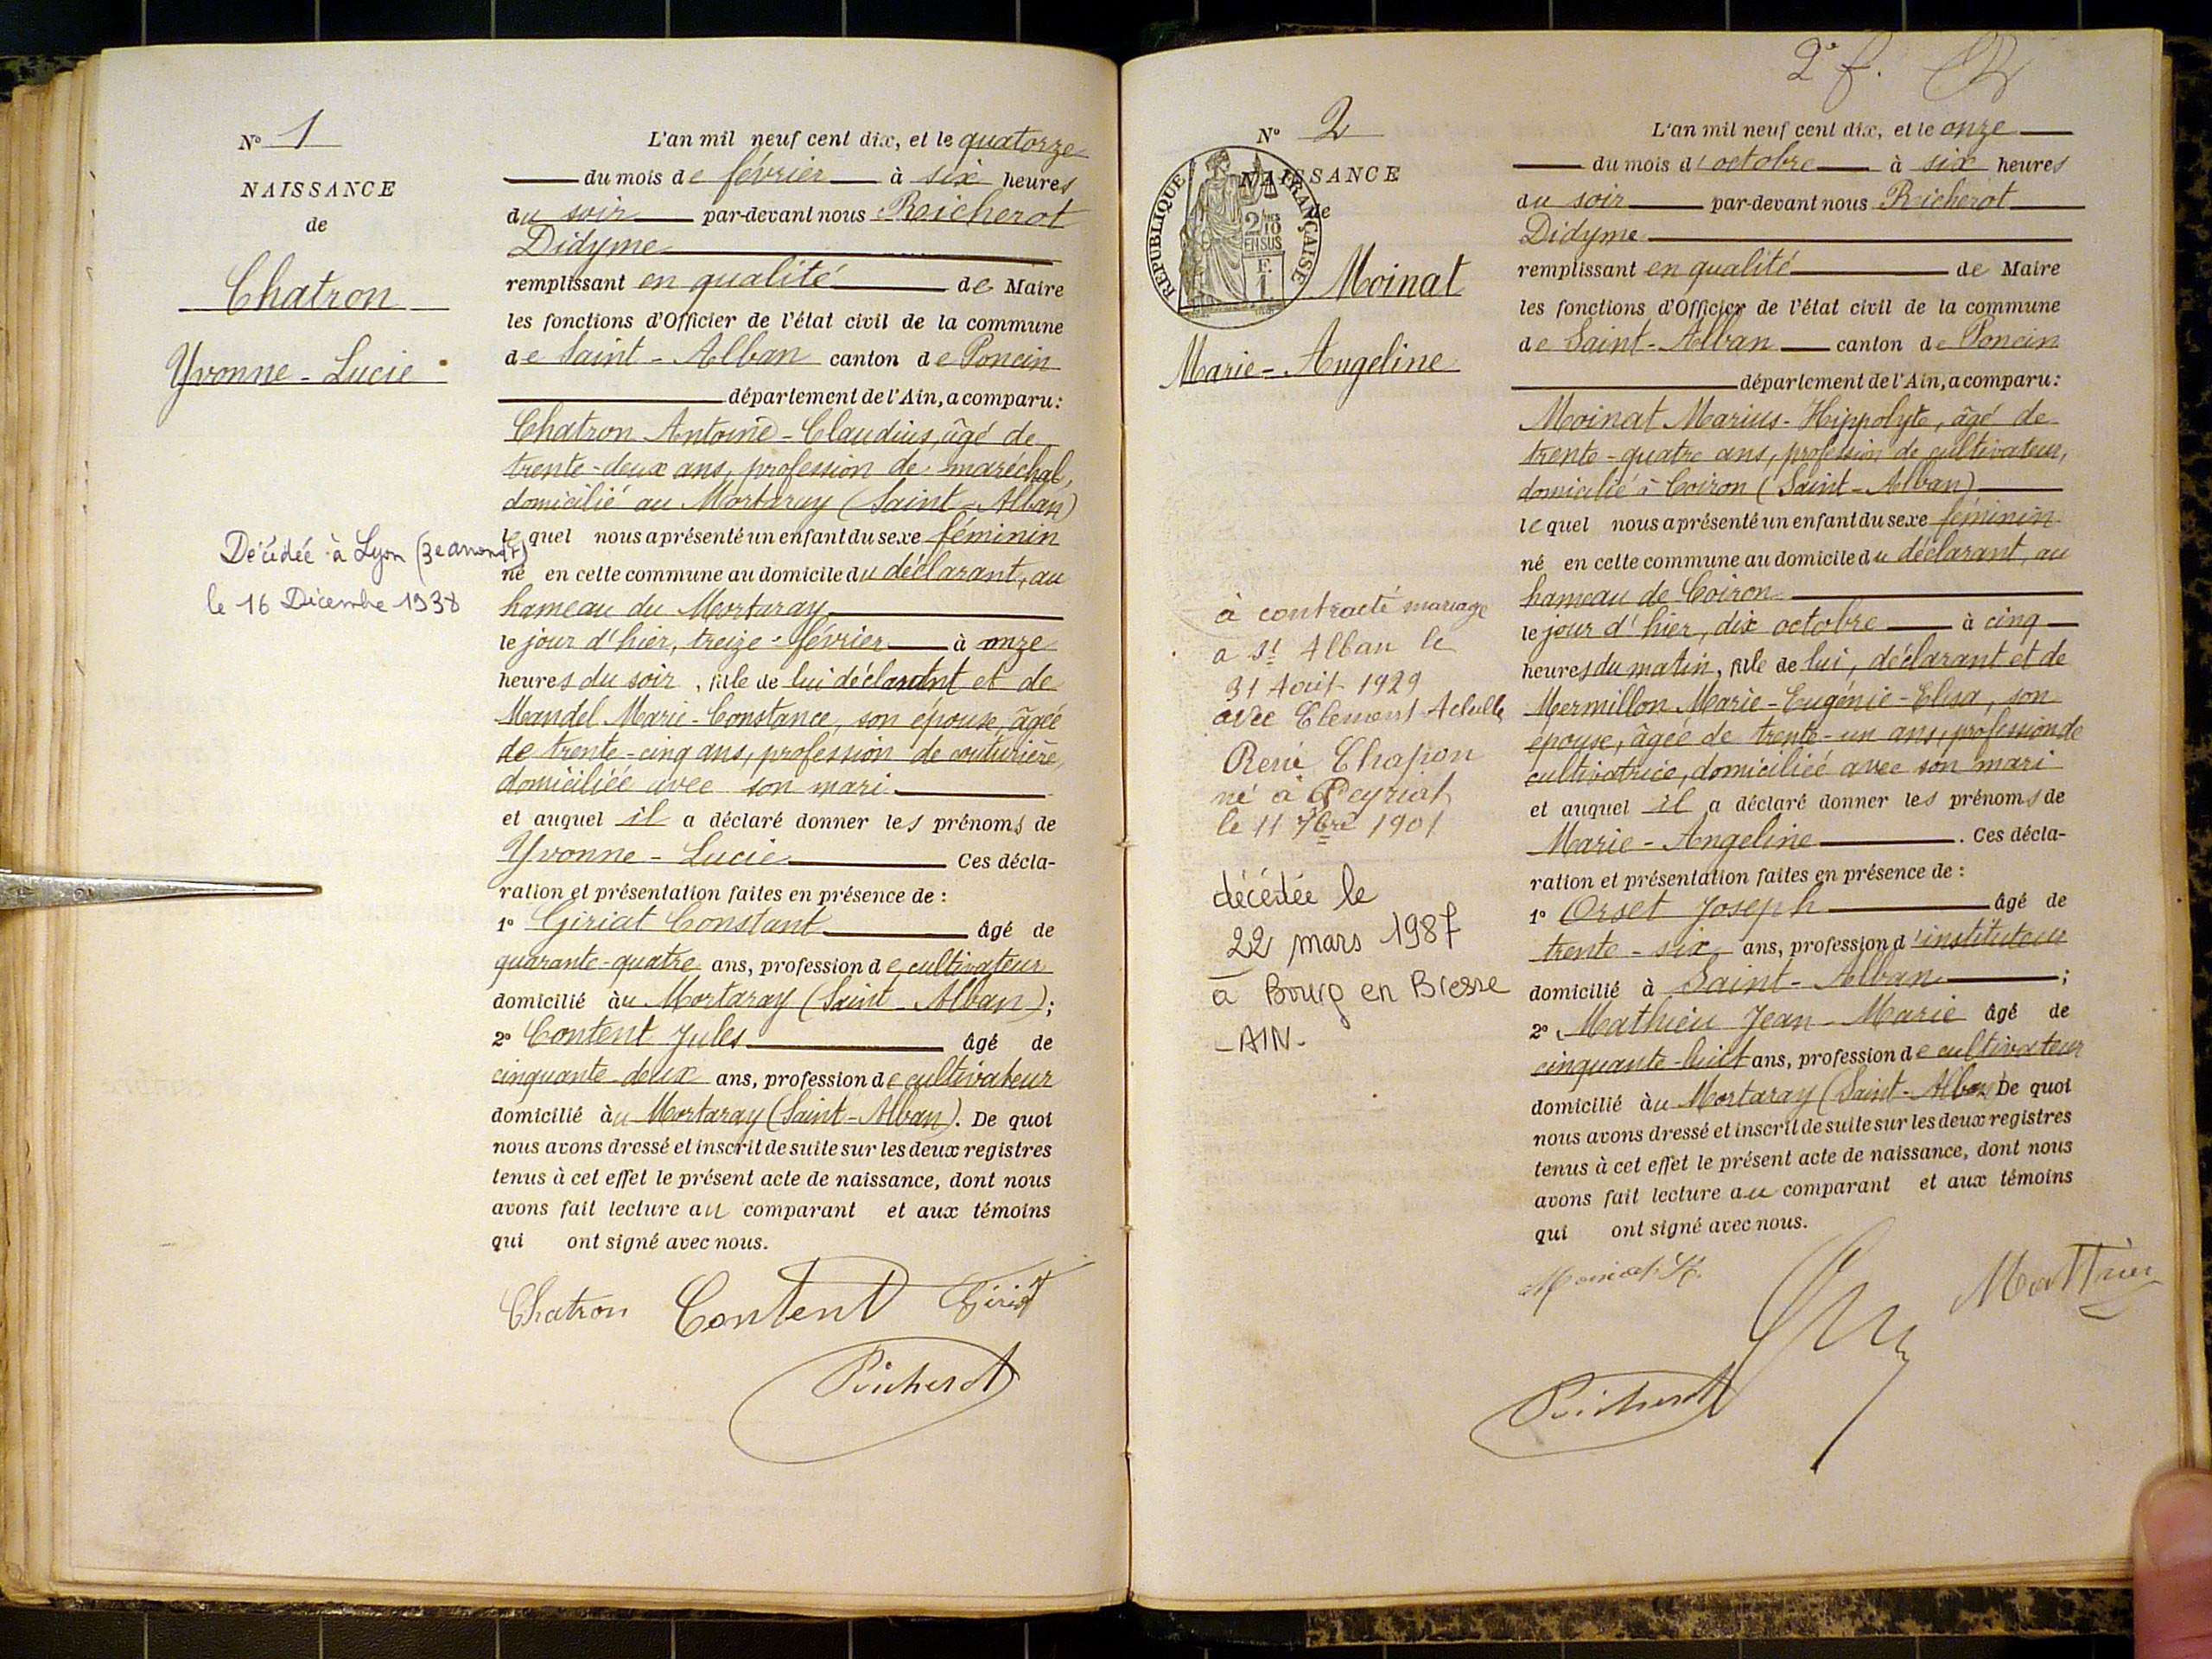 N° 1
NAISSANCE
de
Chatron
Yvonne - Lucie
Décédée à Lyon (3e arrondt)
le 16 Décembre 1938
L'an mil neuf cent dix, et le quatorze
du mois de février à six heures
du soir par-devant nous Richerot
Didyme
remplissant en qualité de Maire
les fonctions d'Officier de l'état civil de la commune
de Saint - Alban canton de Poncin
département de l'Ain, a comparu :
Chatron Antoine - Claudius, âgé de
trente - deux ans, profession de maréchal,
domicilié au Mortaray (Saint - Alban)
lequel nous a présenté un enfant du sexe féminin
né en cette commune au domicile du déclarant, au
hameau du Mortaray
le jour d'hier, treize février à onze
heures du soir, fille de lui déclarant et de
Mandel Marie - Constance, son épouse, âgée
de trente - cinq ans, profession de couturière,
domiciliée avec son mari
et auquel il a déclaré donner les prénoms de
Yvonne - Lucie Ces décla-
ration et présentation faites en présence de :
1° Giriat Constant âgé de
quarante - quatre ans, profession de cultivateur
domicilié au Mortaray (Saint - Alban) ;
2° Content Jules âgé de
cinquante - deux ans, profession de cultivateur
domicilié au Mortaray (Saint - Alban). De quoi
nous avons dressé et inscrit de suite sur les deux registres
tenus à cet effet le présent acte de naissance, dont nous
avons fait lecture au comparant et aux témoins
qui ont signé avec nous.
Chatron Content Giriat
Richerot
2e f.
N° 2
NAISSANCE
de
RÉPUBLIQUE FRANÇAISE
2/10
EN SUS
F.
1
Moinat
Marie - Angeline
à contracté mariage
a St Alban le
31 Août 1929
avec Clément Achille
René Chapon
né à Peyriat
le 11 7bre 1901
décédée le
22 mars 1987
à Bourg en Bresse
- AIN -
L'an mil neuf cent dix, et le onze
du mois d'octobre à six heures
du soir par-devant nous Richerot
Didyme
remplissant en qualité de Maire
les fonctions d'Officier de l'état civil de la commune
de Saint - Alban canton de Poncin
département de l'Ain, a comparu :
Moinat Marius - Hippolyte, âgé de
trente - quatre ans, profession de cultivateur,
domicilié à Coiron (Saint - Alban)
lequel nous a présenté un enfant du sexe féminin
né en cette commune au domicile du déclarant, au
hameau de Coiron
le jour d'hier, dix octobre à cinq
heures du matin, fille de lui, déclarant et de
Mermillon Marie - Eugénie - Elisa, son
épouse, âgée de trente - un ans, profession de
cultivatrice, domiciliée avec son mari
et auquel il a déclaré donner les prénoms de
Marie - Angeline. Ces décla-
ration et présentation faites en présence de :
1° Orset Joseph âgé de
trente - six ans, profession d'instituteur
domicilié à Saint - Alban ;
2° Mathieu Jean - Marie âgé de
cinquante - huit ans, profession de cultivateur
domicilié au Mortaray (Saint - Alban) De quoi
nous avons dressé et inscrit de suite sur les deux registres
tenus à cet effet le présent acte de naissance, dont nous
avons fait lecture au comparant et aux témoins
qui ont signé avec nous.
Moinat H. Mathieu
Richerot